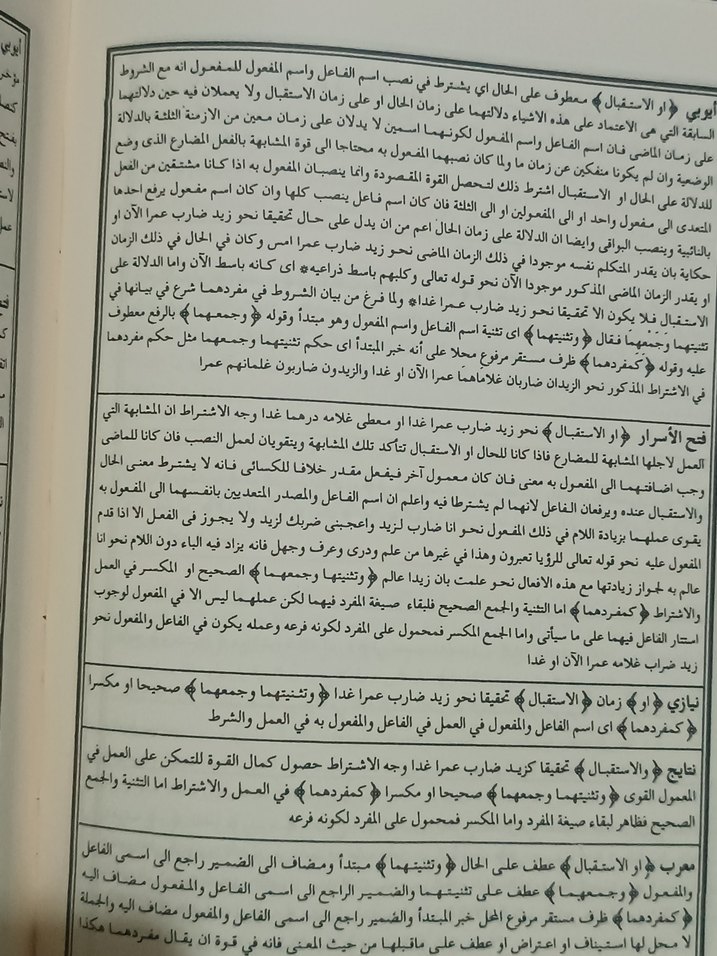 أيوبي ﴿ او الاستقبال ﴾ معطوف على الحال اي يشترط في نصب اسم الفاعل واسم المفعول للمفعول انه مع الشروط
السابقة التي هى الاعتماد على هذه الاشياء دلالتهما على زمان الحال او على زمان الاستقبال ولا يعملان فيه حين دلالتهما
على زمان الماضى فان اسم الفاعل واسم المفعول لكونهما اسمين لا يدلان على زمان معين من الازمنة الثلثة بالدلالة
الوضعية وان لم يكونا منفكين عن زمان ما ولما كان نصبهما المفعول به محتاجا الى قوة المشابهة بالفعل المضارع الذى وضع
للدلالة على الحال او الاستقبال اشترط ذلك لتحصل القوة المقصودة وانما ينصبان المفعول به اذا كانا مشتقين من الفعل
المتعدى الى مفعول واحد او الى المفعولين او الى الثلثة فان كان اسم فاعل ينصب كلها وان كان اسم مفعول يرفع احدها
بالنائبية وينصب البواقى وايضا ان الدلالة على زمان الحال اعم من ان يدل على حال تحقيقا نحو زيد ضارب عمرا الآن او
حكاية بان يقدر المتكلم نفسه موجودا في ذلك الزمان الماضى نحو زيد ضارب عمرا امس وكان في الحال في ذلك الزمان
او يقدر الزمان الماضى المذكور موجودا الآن نحو قوله تعالى وكلبهم باسط ذراعيه* اى كانه باسط الآن واما الدلالة على
الاستقبال فلا يكون الا تحقيقا نحو زيد ضارب عمرا غدا* ولما فرغ من بيان الشروط في مفردهما شرع في بيانها في
تثنيتهما وجمعهما فقال ﴿ وتثنيتهما ﴾ اى تثنية اسم الفاعل واسم المفعول وهو مبتدأ وقوله ﴿ وجمعهما ﴾ بالرفع معطوف
عليه وقوله ﴿ كمفردهما ﴾ ظرف مستقر مرفوع محلا على أنه خبر المبتدأ اى حكم تثنيتهما وجمعهما مثل حكم مفردهما
في الاشتراط المذكور نحو الزيدان ضاربان غلاماهما عمرا الآن او غدا والزيدون ضاربون غلمانهم عمرا
فتح الأسرار ﴿ او الاستقبال ﴾ نحو زيد ضارب عمرا غدا او معطى غلامه درهما غدا وجه الاشتراط ان المشابهة التي
العمل لاجلها المشابهة للمضارع فاذا كانا للحال او الاستقبال تتأكد تلك المشابهة ويتقويان لعمل النصب فان كانا للماضى
وجب اضافتهما الى المفعول به معنى فان كان معمول آخر فبفعل مقدر خلافا للكسائى فانه لا يشترط معنى الحال
والاستقبال عنده ويرفعان الفاعل لانهما لم يشترطا فيه واعلم ان اسم الفاعل والمصدر المتعديين بانفسهما الى المفعول به
يقوى عملهما بزيادة اللام في ذلك المفعول نحو انا ضارب لزيد واعجبنى ضربك لزيد ولا يجوز فى الفعل الا اذا قدم
المفعول عليه نحو قوله تعالى للرؤيا تعبرون وهذا في غيرها من علم ودرى وعرف وجهل فانه يزاد فيه الباء دون اللام نحو انا
عالم به لجواز زيادتها مع هذه الافعال نحو علمت بان زيدا عالم ﴿ وتثنيتها وجمعهما ﴾ الصحيح او المكسر في العمل
والاشتراط ﴿ كمفردهما ﴾ اما التثنية والجمع الصحيح فلبقاء صيغة المفرد فيهما لكن عملهما ليس الا في المفعول لوجوب
استتار الفاعل فيهما على ما سيأتى واما الجمع المكسر فمحمول على المفرد لكونه فرعه وعمله يكون في الفاعل والمفعول نحو
زيد ضراب غلامه عمرا الآن او غدا
نيازي ﴿ او ﴾ زمان ﴿ الاستقبال ﴾ تحقيقا نحو زيد ضارب عمرا غدا ﴿ وتثنيتهما وجمعهما ﴾ صحيحا او مكسرا
﴿ كمفردهما ﴾ اى اسم الفاعل والمفعول في العمل في الفاعل والمفعول به في العمل والشرط
نتايج ﴿ والاستقبال ﴾ تحقيقا كزيد ضارب عمرا غدا وجه الاشتراط حصول كمال القوة للتمكن على العمل في
المعمول القوى ﴿ وتثنيتهما وجمعهما ﴾ صحيحا او مكسرا ﴿ كمفردهما ﴾ في العمل والاشتراط اما التثنية والجمع
الصحيح فظاهر لبقاء صيغة المفرد واما المكسر فمحمول على المفرد لكونه فرعه
معرب ﴿ او الاستقبال ﴾ عطف على الحال ﴿ وتثنيتهما ﴾ مبتدأ ومضاف الى الضمير راجع الى اسمى الفاعل
والمفعول ﴿ وجمعهما ﴾ عطف على تثنيتهما والضمير الراجع الى اسمى الفاعل والمفعول مضاف اليه
﴿ كمفردهما ﴾ ظرف مستقر مرفوع المحل خبر المبتدأ والضمير راجع الى اسمى الفاعل والمفعول مضاف اليه والجملة
لا محل لها استيناف او اعتراض او عطف على ماقبلها من حيث المعنى فانه في قوة ان يقال مفردهما هكذا